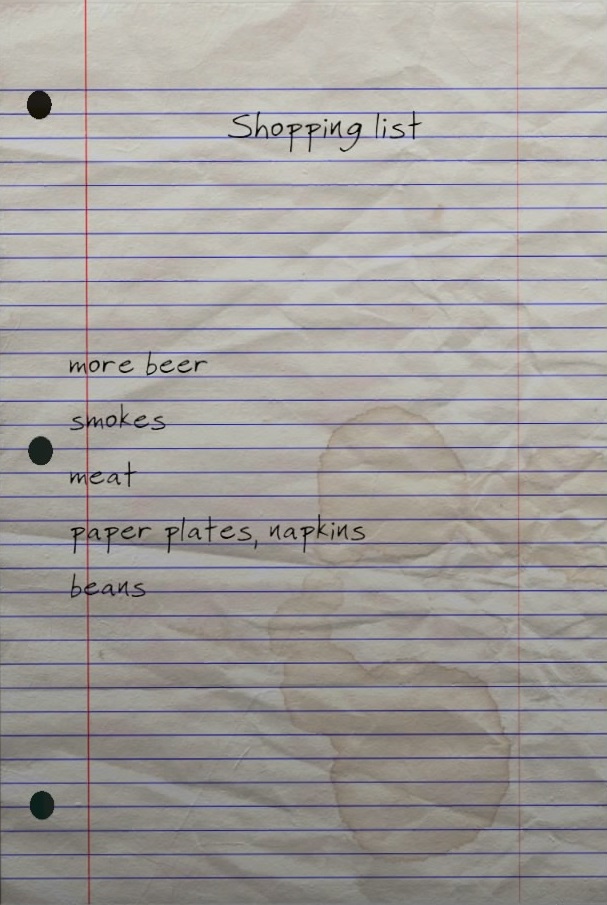 Shopping list
more beer
smokes
meat
paper plates, napkins
beans